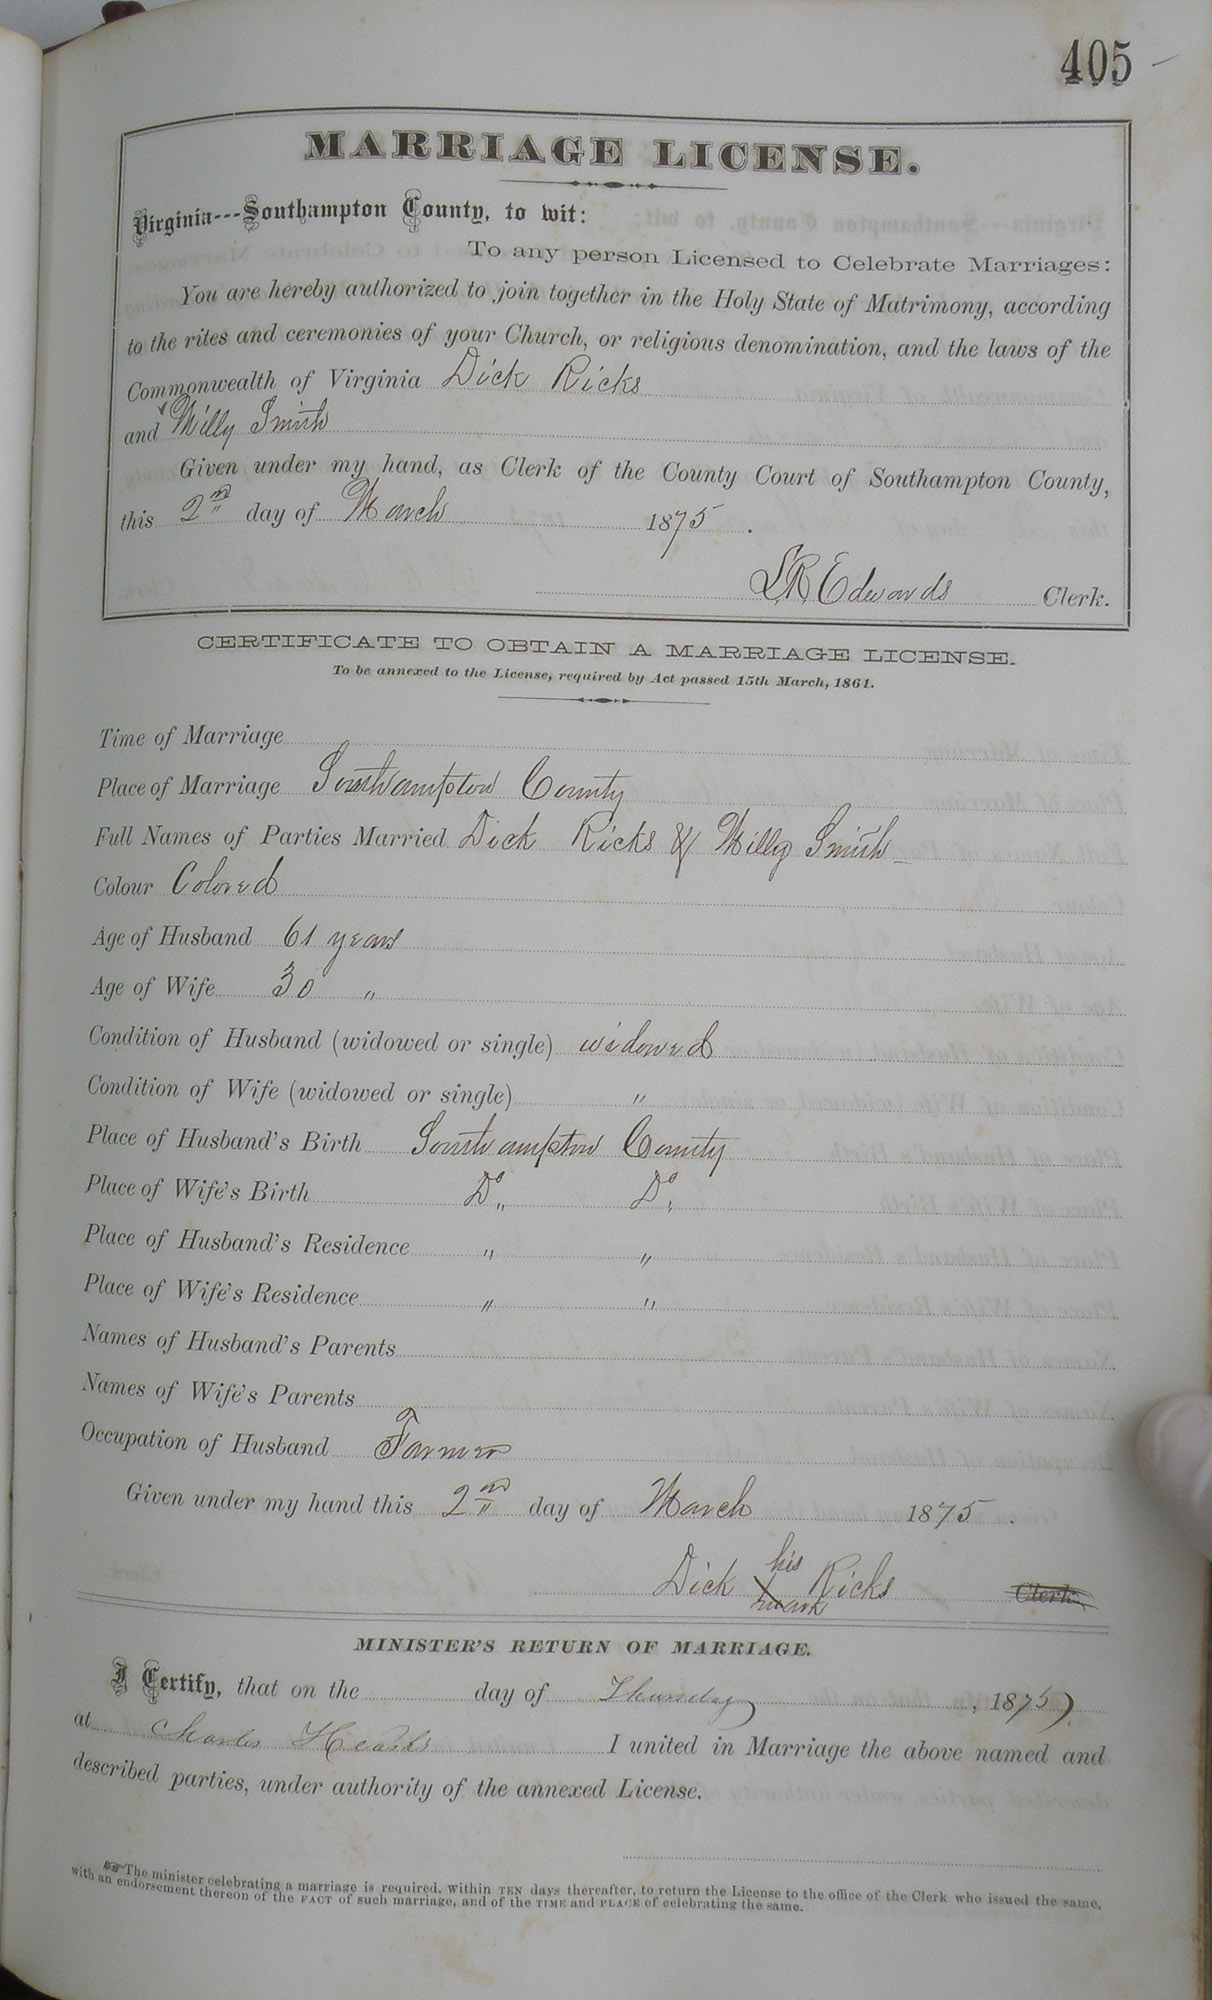 405
MARRIAGE LICENSE.
Virginia---Southampton County, to wit:
To any person Licensed to Celebrate Marriages:
You are hereby authorized to join together in the Holy State of Matrimony, according
to the rites and ceremonies of your Church, or religious denomination, and the laws of the
Commonwealth of Virginia Dick Ricks
and Milly Smith
Given under my hand, as Clerk of the County Court of Southampton County,
this 2nd day of March 1875.
L R Edwards Clerk.
CERTIFICATE TO OBTAIN A MARRIAGE LICENSE.
To be annexed to the License, required by Act passed 15th March, 1861.
Time of Marriage
Place of Marriage Southampton County
Full Names of Parties Married Dick Ricks & Milly Smith
Colour Colored
Age of Husband 61 years
Age of Wife 30 "
Condition of Husband (widowed or single) widowed
Condition of Wife (widowed or single) "
Place of Husband's Birth Southampton County
Place of Wife's Birth Do Do
Place of Husband's Residence " "
Place of Wife's Residence " "
Names of Husband's Parents
Names of Wife's Parents
Occupation of Husband Farmer
Given under my hand this 2nd day of March 1875.
his
Dick X Ricks Clerk
mark
MINISTER'S RETURN OF MARRIAGE.
I Certify, that on the day of Thursday, 1875
at Charles I united in Marriage the above named and
described parties, under authority of the annexed License.
The minister celebrating a marriage is required, within TEN days thereafter, to return the License to the office of the Clerk who issued the same,
with an endorsement thereon of the FACT of such marriage, and of the TIME and PLACE of celebrating the same.